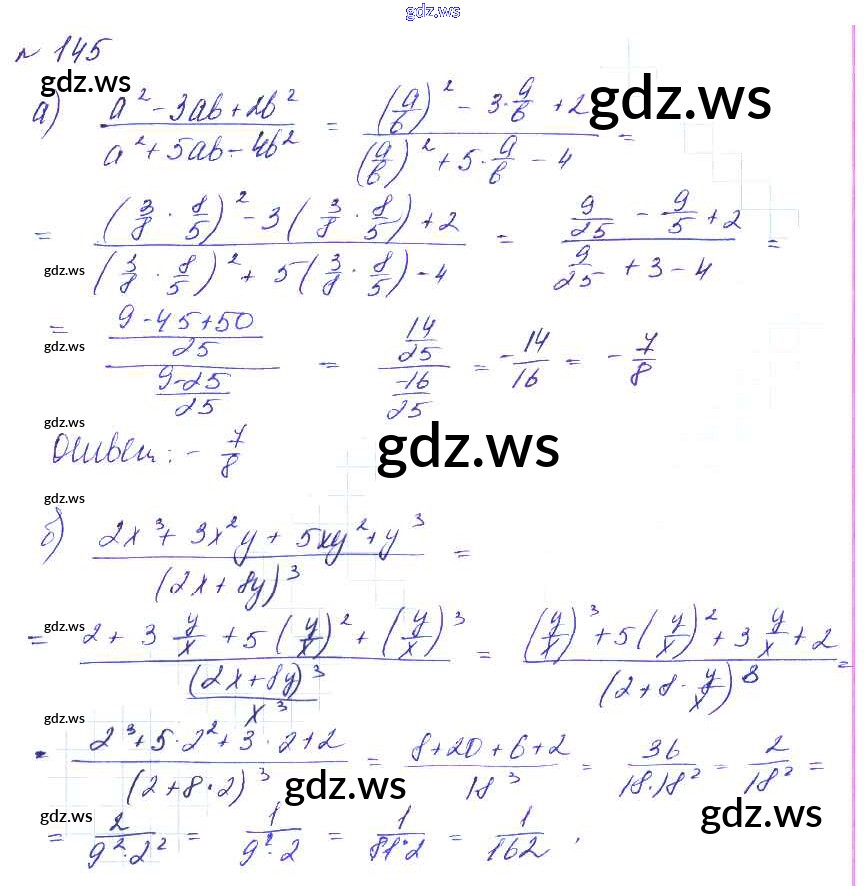 gdz.ws
№ 145
gdz.ws
а) (a² - 3ab + 2b²)/(a² + 5ab - 4b²) = ((a/b)² - 3·a/b + 2)/((a/b)² + 5·a/b - 4) =
gdz.ws
= ((3/8 · 8/5)² - 3(3/8 · 8/5) + 2)/((3/8 · 8/5)² + 5(3/8 · 8/5) - 4) = (9/25 - 9/5 + 2)/(9/25 + 3 - 4) =
gdz.ws
= ((9 - 45 + 50)/25)/((9 - 25)/25) = (14/25)/(-16/25) = -14/16 = -7/8
gdz.ws
gdz.ws
Ответ: -7/8
gdz.ws
gdz.ws
б) (2x³ + 3x²y + 5xy² + y³)/(2x + 8y)³ =
gdz.ws
= (2 + 3 y/x + 5(y/x)² + (y/x)³)/((2x + 8y)³/x³) = ((y/x)³ + 5(y/x)² + 3 y/x + 2)/(2 + 8·y/x)³ =
gdz.ws
= (2³ + 5·2² + 3·2 + 2)/(2 + 8·2)³ = (8 + 20 + 6 + 2)/18³ = 36/(18·18²) = 2/18² =
gdz.ws
gdz.ws
gdz.ws
= 2/(9²·2²) = 1/(9²·2) = 1/(81·2) = 1/162.